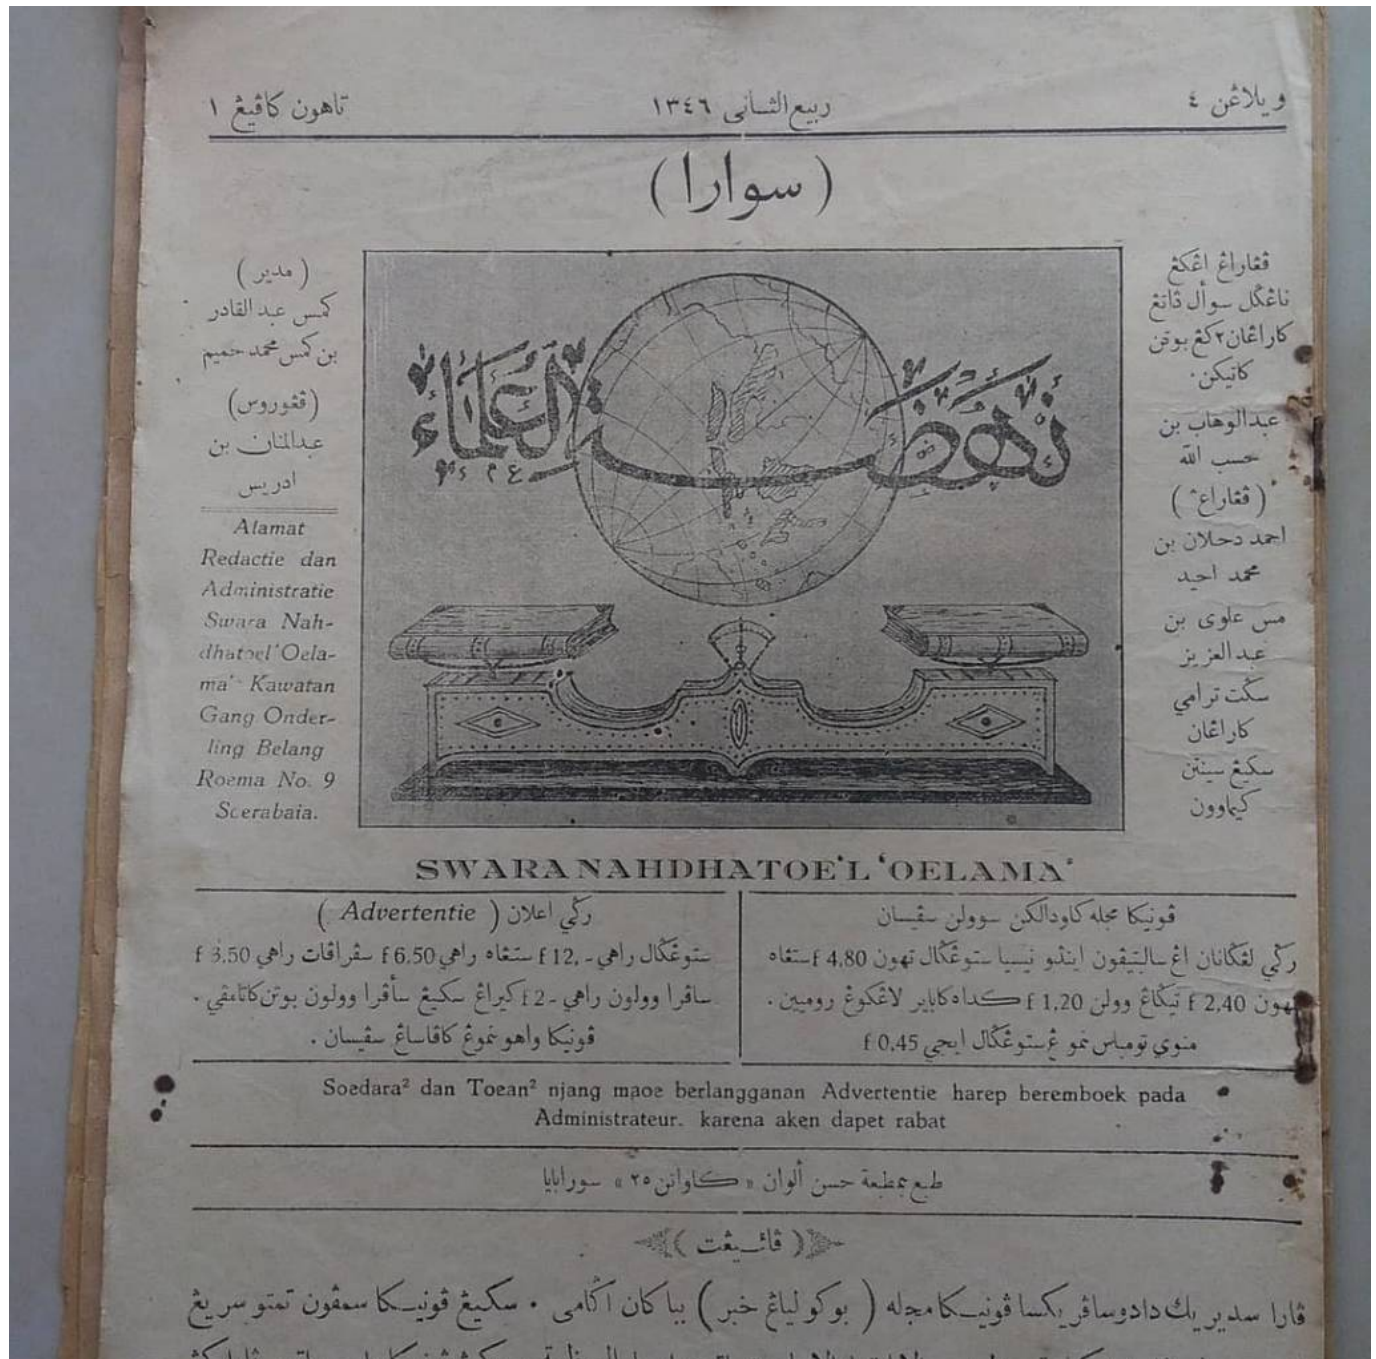 ويلاڠن ٤
ربيع الثانى ١٣٤٦
تاهون كاڤيڠ ١
( سوارا )
ڤڠاراڠ اڠكڠ
ناڠݢل سوأل ڤانڠ
كاراڠان٢ كڠ بوتن
كاتيكن.
عبدالوهاب بن
حسب الله
( ڤڠاراڠ )
احمد دحلان بن
محمد احيد
مس علوى بن
عبد العزيز
سكت ترامي
كاراڠان
سكيڠ سينتن
كيماوون
نهضة العلماء
( مدير )
كمس عبد القادر
بن كمس محمد حميم
(ڤڠوروس)
عبدالمنان بن
ادريس
Alamat
Redactie dan
Administratie
Swara Nah-
dhatoel'Oela-
ma'- Kawatan
Gang Onder-
ling Belang
Roema No. 9
Soerabaia.
SWARA NAHDHATOE'L 'OELAMA'
ڤونيكا مجله كاودالكن سوولن سڤيسان
رڬي لڠڬانان اڠ سالبتيڤون ايندو نيسيا ستوڠݢال تهون f 4.80 ستڠاه
تهون f 2,40 تيڬاڠ وولن f 1,20 كداه كاباير لاڠكوڠ روميين .
منوي تومباس نمو ڠ ستوڠݢال ايجي f 0,45
رڬي اعلان ( Advertentie )
ستوڠݢال راهي -,f 12 ستڠاه راهي f 6.50 سڤراڤات راهي f 3.50
ساڤرا وولون راهي -f 2 كيراڠ سكيڠ سأڤرا وولون بوتن كاتامڤي .
ڤونيكا واهو نموڠ كاڤاساڠ سڤيسان .
Soedara² dan Toean² njang maoe berlangganan Advertentie harep beremboek pada
Administrateur. karena aken dapet rabat
طبع بمطبعة حسن ألوان « كاواتن ٢٥ » سورابايا
( ڤائسيڠت )
ڤارا سدير يك دادوساڤر يكسا ڤونيكا مجله ( بوكو لياڠ خبر ) بباكان اڬامى . سكيڠ ڤونيكا سمڤون تمتو سريڠ